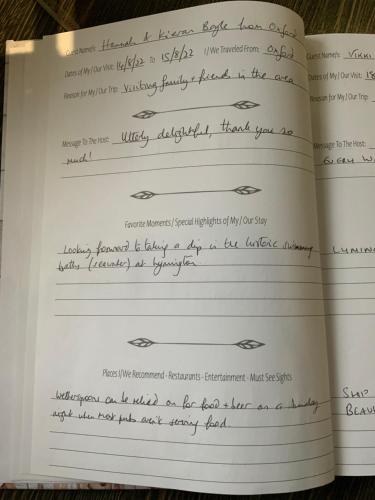 Guest Name/s: Hannah & Kieran Bogle from Oxford
Dates of My / Our Visit: 14/8/22 to 15/8/22 I / We Traveled From: Oxford
Reason for My / Our Trip: Visiting family + friends in the area
Message To The Host: Utterly delightful, thank you so
much!
Favorite Moments / Special Highlights of My / Our Stay
Looking forward to taking a dip in the historic swimming
baths (seawater) at Lymington.
Places I/We Recommend - Restaurants - Entertainment - Must See Sights
Wetherspoons can be relied on for food + beer on a Sunday
night when most pubs aren't serving food.
Guest Name/s: VIKKI
Dates of My / Our Visit: 18
Reason for My / Our Trip:
Message To The Host:
EVERY W
LUMIN
SHIP
BEAU